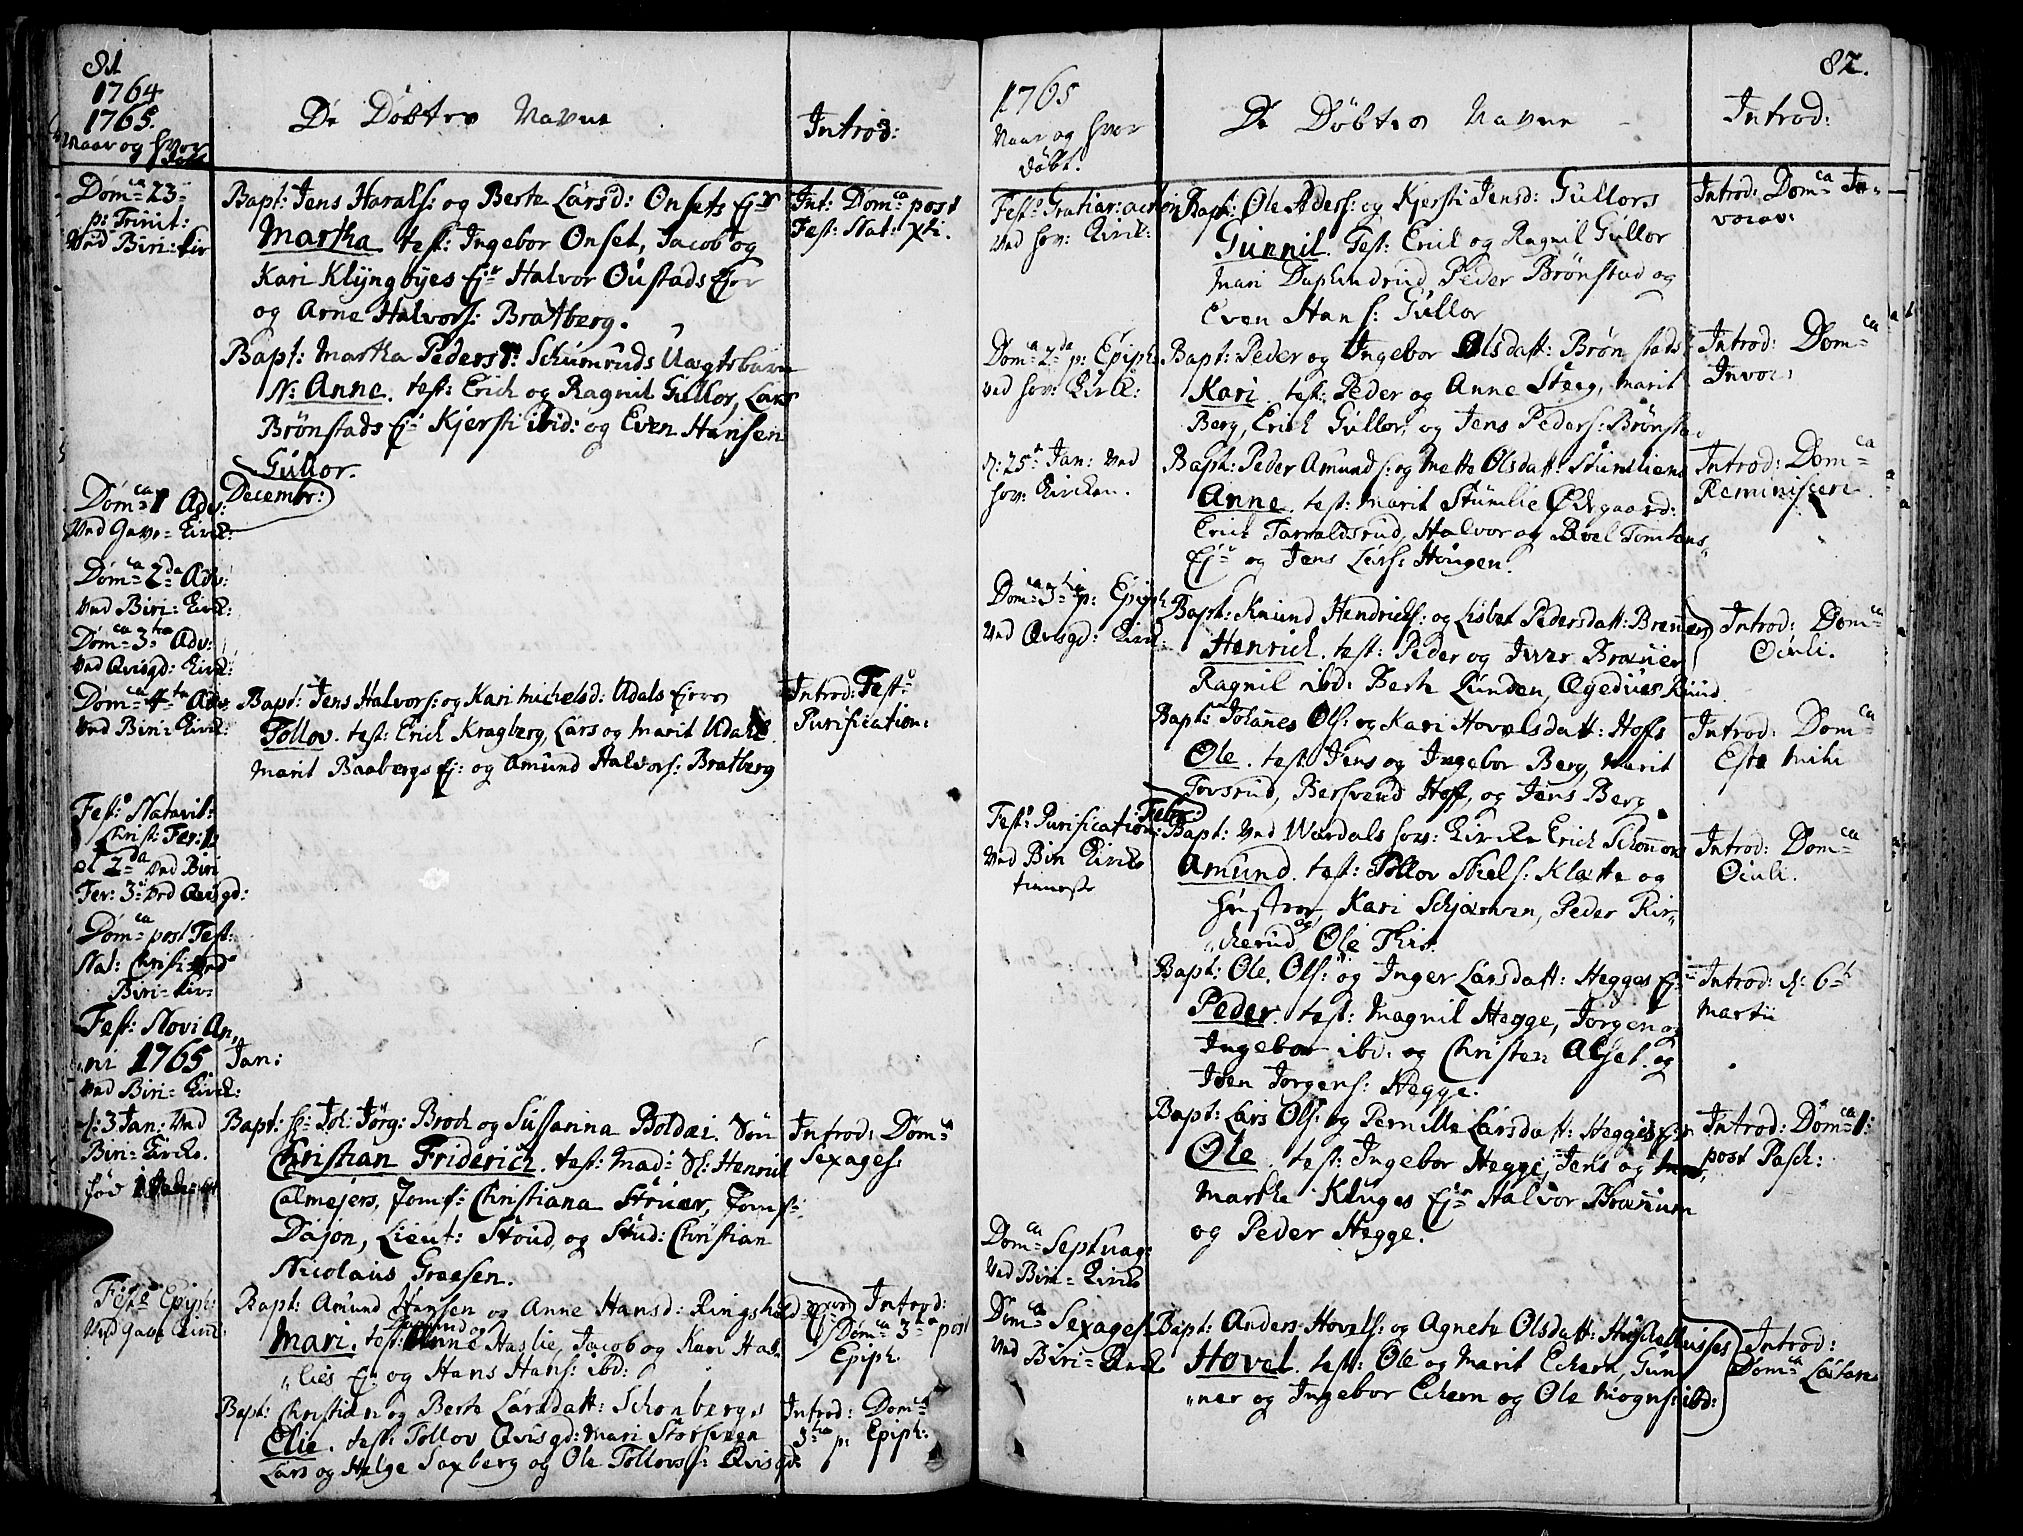 81
1764
1765.
Naar og hvor
døbt
De Døbtes Navne
Introd:
Domca 23
p: Trinit:
Ved Biri-Kir
Bapt: Jens Haralds: og Berte Larsd: Onsets Ejer
Martha test: Ingebor Onset, Jacob og
Kari Klyngbyes Ejr Halvor Oustads Ejer
og Arne Halvors: Bratberg.
Int: Domca post
Fest: Nat: Xti.
Bapt: Martha Peders Dr: Schumruds Uægtebarn
N: Anne. test: Erich og Ragnil Gullor, Lars
Brønstads Ej: Kjersti ibid: og Even Hansen
Gullor.
Domca 1 Adv:
Ved Gave-Kirck:
Decembr:
Domca 2da Adv:
Ved Biri-Kirck:
Domca 3tia Adv:
Ved Qvisgd: Kirck:
Domca 4ta Adv
Ved Biri-Kirck:
Bapt: Jens Halvors: og Kari Michelsd: Udals Ejere
Tollov. test: Erich Kragberg, Lars og Marit Udahl
Marit Baabergs Ej: og Amund Halvors: Bratberg
Introd: Festo
Purification:
Festo Nativit:
Christ: Fer: 1
et 2da Ved Biri
Fer: 3 Ved Qvisgd:
Domca post Fest:
Nat: Christi Ved
Biri-Kir-
Fest: Novi An,
ni 1765
Ved Biri-Kirck:
Jan:
d: 3 Jan: Ved
Biri-Kircke.
Bapt: Hr Joh: Jørg: Broch og Sussanna Boldai. Søn
Christian Friderich. test: Mad: Sl: Henrich
Calmejers, Jomf: Christiana Struer, Jomf:
Dajon, Lieut: Stoud, og Stud: Christian
Nicolaus Græsen.
Introd: Domca
Sexages:
Festo Epiph:
Ved Gave Kirck:
Bapt: Amund Hansen og Anne Hansd: Ringsha
Mari. test: Amund og Anne Haslie, Jacob og Kari Has-
lies Ej: og Hans Hans: ibd:
Introd:
Domca 3tia post
Epiph.
Bapt: Christian og Berte Larsdatt: Schonbergs
Elie. test: Tollov Qvisgd: Mari Storsveen
Lars og Helge Saxberg og Ole Tollovs: Qvisgd:
Introd: Domca
3tia p: Epiph:
82.
1765
Naar og hvor
døbt.
De Døbtes Navne
Introd:
Festo Gratiar: action
Ved Hov: Kirck:
Bapt: Ole Aders: og Kjersti Jensd: Gullors
Gunnil. Test: Erich og Ragnil Gullor
Mari Daphindrud, Peder Brønstad og
Even Hans: Gullor
Introd: Domca In-
vocav:
Domca 2da p: Epiph.
Ved Hov: Kirck:
Bapt: Peder og Ingebor Olsdatt: Brønstads
Kari. test: Peder og Anne Steeg, Marit
Berg, Erich Gullor, og Jens Peders: Brønsta
Introd: Domca
Invoc:
d: 25t Jan: Ved
Hov: Kircken.
Bapt: Peder Amunds: og Mette Olsdatt: Stumliens
Anne. test: Marit Stumlie Ødegaard:
Erich Tarraldsrud, Halvor og Axel Tomtens
Ejr og Jens Lars: Haugen.
Introd: Domca
Reminisceri.
Domca 3tia p: Epiph
Ved Qvisgd: Kirck:
Bapt: Knud Hendrichs: og Lisbet Pedersdatt: Brenner
Henrich. test: Peder og Iver Brænner
Ragnil ibd: Berte Lunden, Ægedius Ruud
Introd: Domca
Oculi.
Bapt: Johannes Ols: og Kari Hovelsdatt: Hofs
Ole. test: Jens og Ingebor Berg, Marit
Tovsrud, Bersvend Hoff, og Jens Berg.
Introd: Domca
Esto Mihi
Festo Purification:
Ved Biri Kircke
tieneste
Febr:
Bapt: Ved Wardals Hov: Kircke Erich Schonnors
Amund. test: Tollov Niels: Klætte og
Hustroe, Kari Schjerven, Peder Kir-
kerud, og Ole This
Introd: Domca
Oculi.
Bapt: Ole Ols: og Inger Larsdatt: Hegges Ejr
Peder. test: Magnil Hegge, Jørgen og
Ingebor ibd: og Christen Alset og
Iven Jorgens: Hegge.
Introd: d: 6t
Martii
Bapt: Lars Ols: og Pernille Larsdatt: Hegges Ejr
Ole. test: Ingebor Hegge, Jens og
Marthe Kluges Ejr Halvor Brænnum
og Peder Hegge.
Introd: Domca 1:
post Pasch:
Domca Septuag:
Ved Biri-Kircke
Domca Sexages:
Ved Biri-Kirck
Bapt: Anders Hovels: og Agnete Olsdatt:
Hovel. test: Ole og Marit Echern, Gun-
ner og Ingebor Echern og Ole Mogns: ibd:
Introd:
Domca Lætare